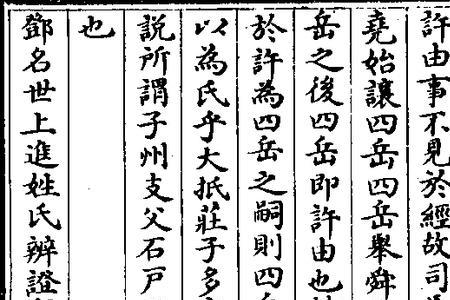 許由事不見於經故司
堯始讓四岳四岳舉舜
岳之後四岳即許由也
於許為四岳之嗣則四岳
以為氏乎大抵莊子多
說所謂子州支父石戸
也
鄧名世上進姓氏辨證